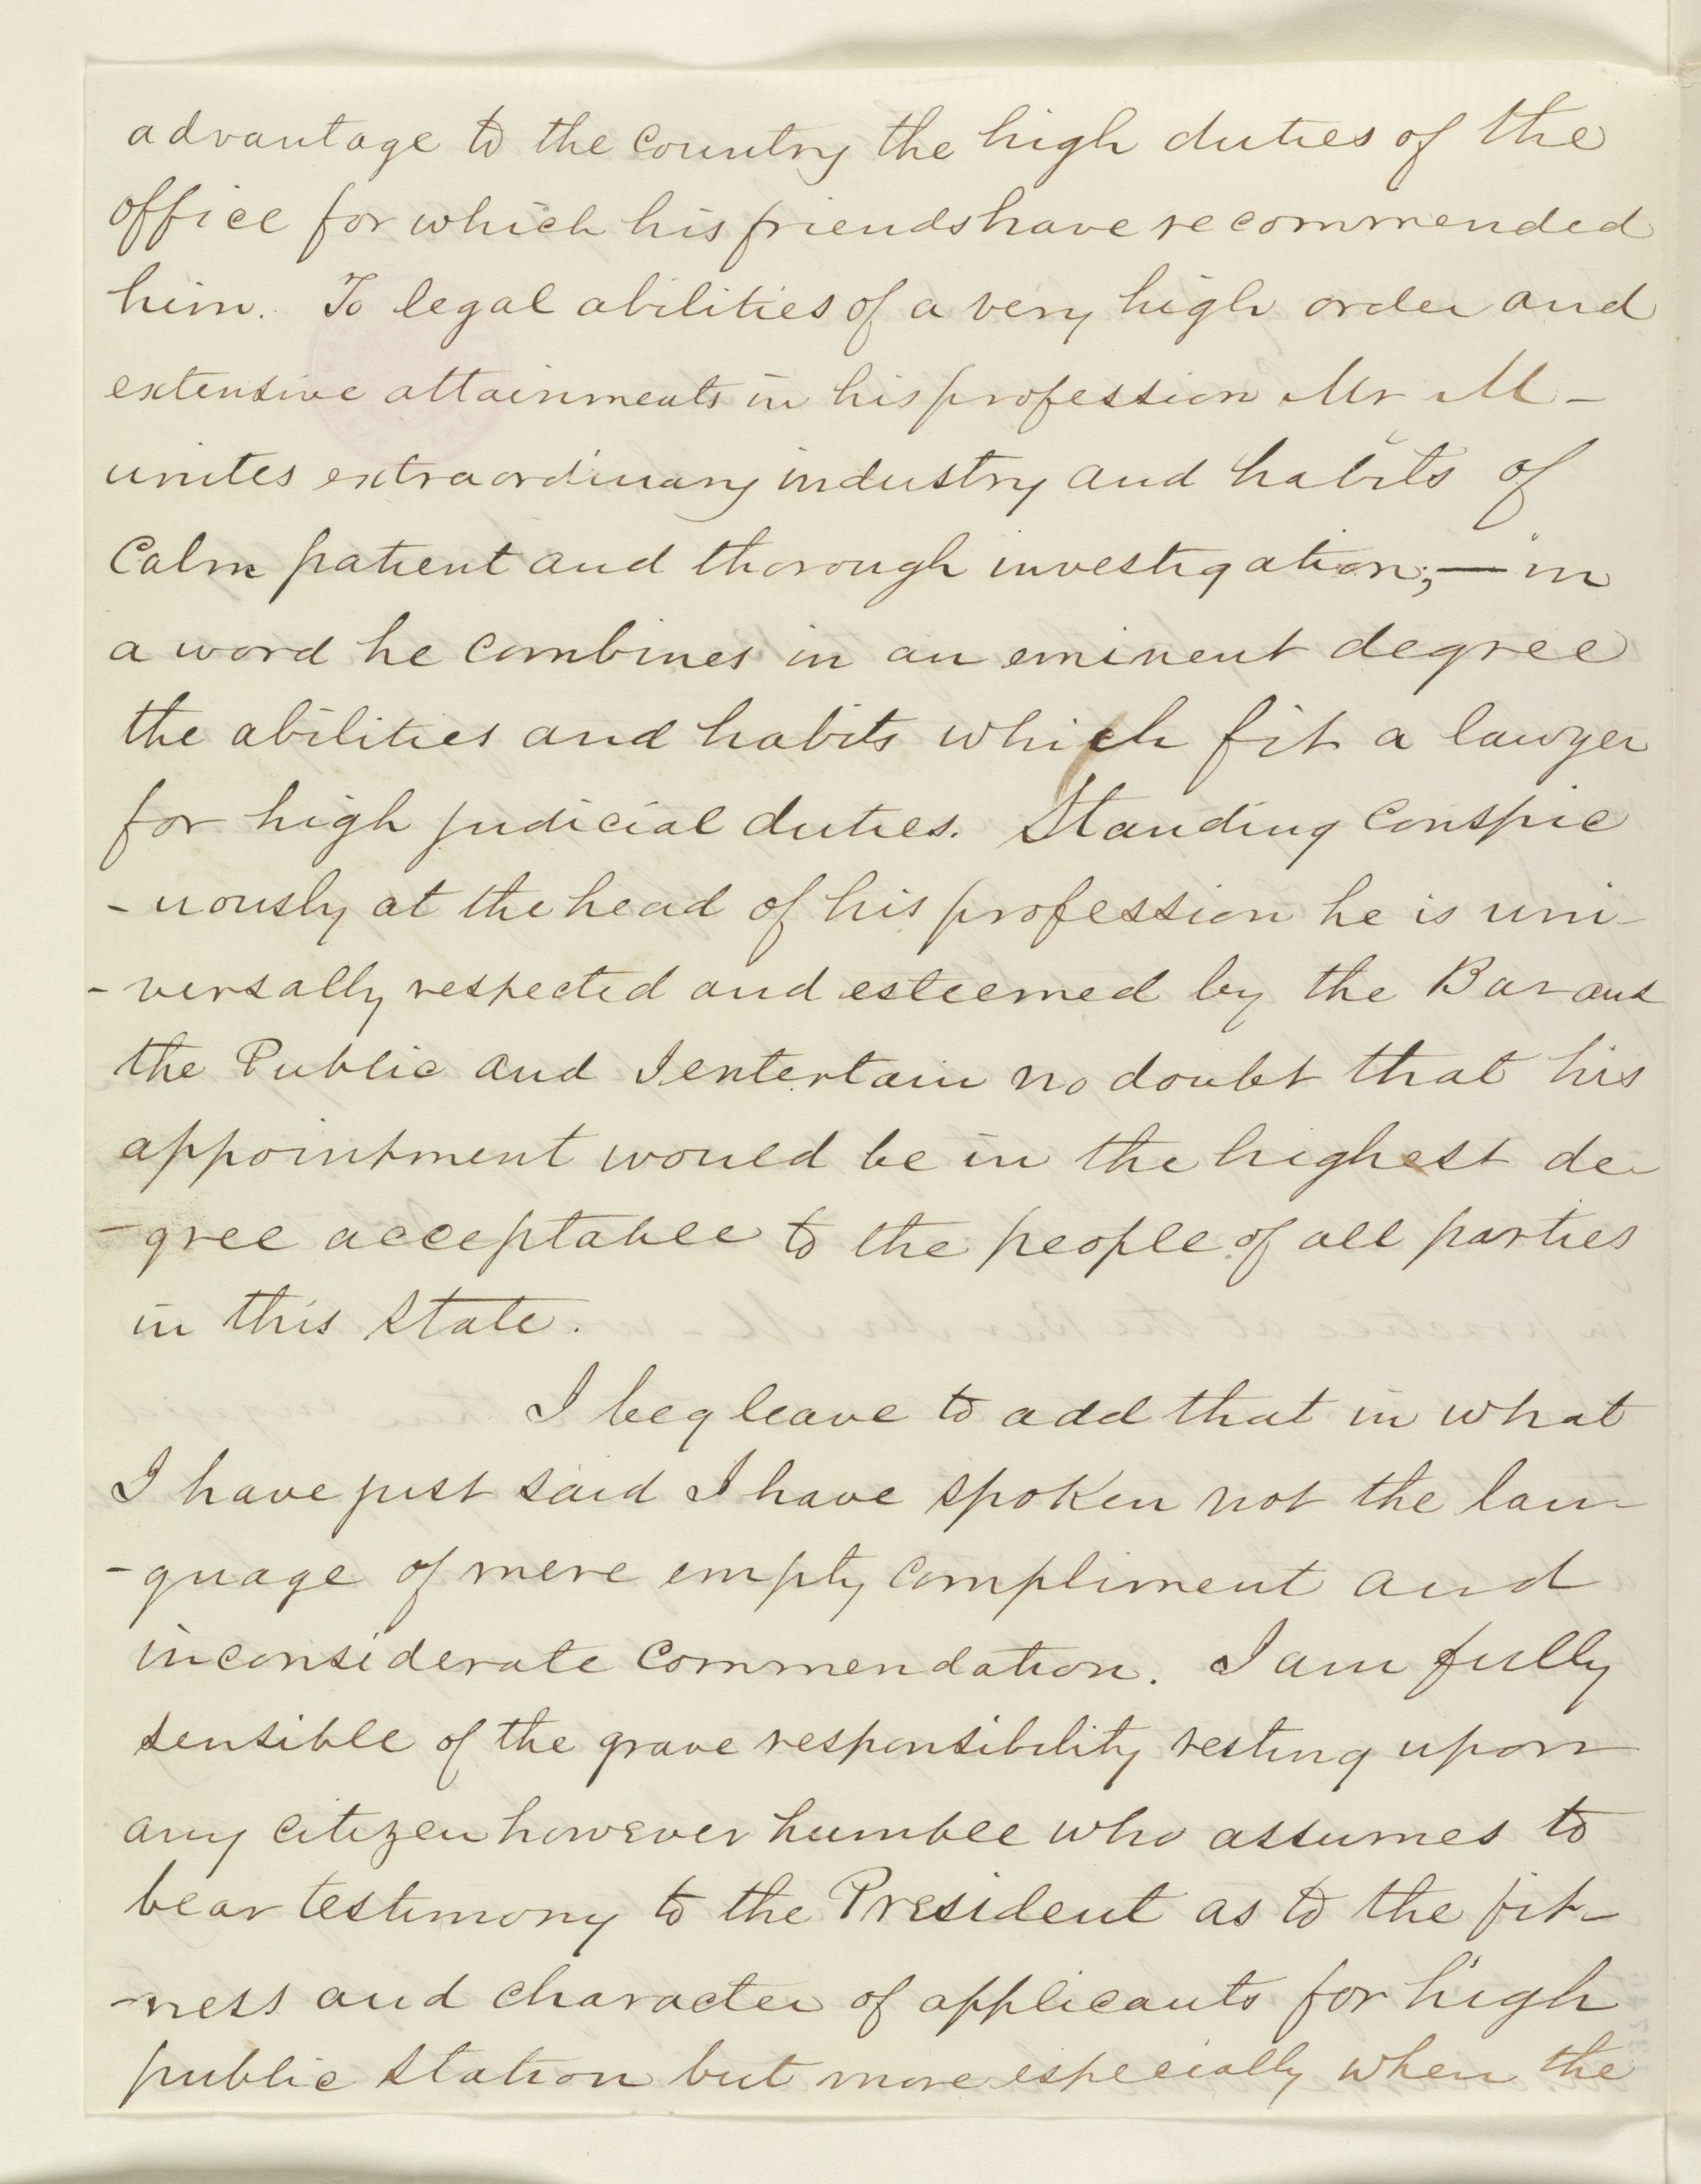 advantage to the country the high duties of the
office for which his friends have recommended
him. To legal abilities of a very high order and
extensive attainments in his profession Mr M-
unites extraordinary industry and habits of
Calm patient and thorough investigation;— in
a word he combines in an eminent degree
the abilities and habits which fit a lawyer
for high judicial duties. Standing conspic
-uously at the head of his profession he is uni-
-versally respected and esteemed by the Bar and
the Public and I entertain no doubt that his
appointment would be in the highest de-
-gree acceptable to the people of all parties
in this State.
I beg leave to add that in what
I have just said I have spoken not the lan-
-guage of mere empty compliment and
inconsiderate commendation. I am fully
sensible of the grave responsibility resting upon
any citizen however humble who assumes to
bear testimony to the President as to the fit-
-ness and character of applicants for high
public station but more especially when the